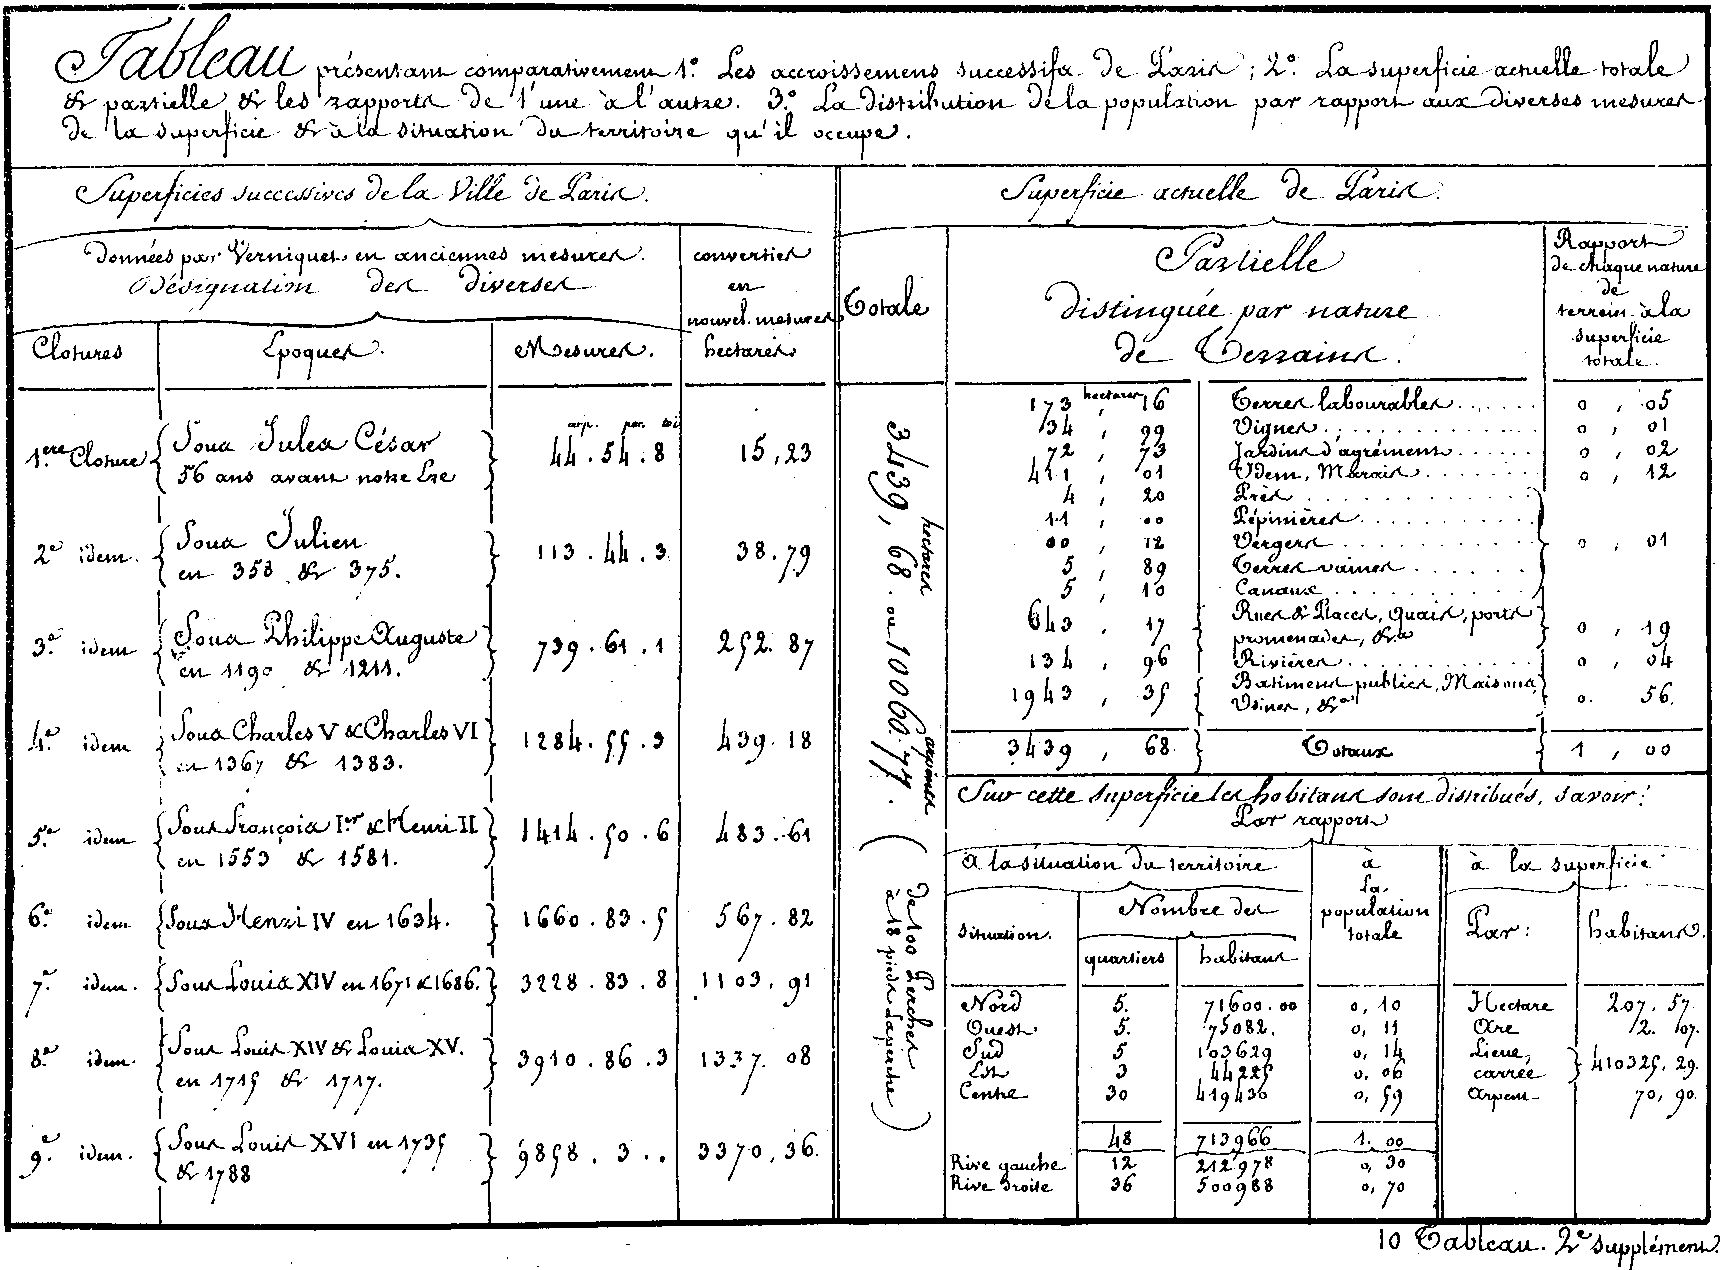 Tableau présentant comparativement 1.º Les accroissemens successifs de Paris ; 2.º La superficie actuelle totale
& partielle & les rapports de l'une à l'autre. 3.º La distribution de la population par rapport aux diverses mesures
de la superficie & à la situation du territoire qu'il occupe.
Superficies successives de la Ville de Paris.
Données par Verniquet en anciennes mesures.
Désignation des diverses
Clotures
Epoques.
Mesures.
converties
en
nouvel. mesures
hectares
arp. per. toi
1.ere Cloture Sous Jules César 44.54.8 15,23
56 ans avant notre Ere
2.e idem. Sous Julien 113.44.3 38.79
en 358 & 375.
3.e idem Sous Philippe Auguste 739.61.1 252.87
en 1190 & 1211.
4.e idem Sous Charles V & Charles VI 1284.55.3 439.18
en 1367 & 1383.
5.e idem Sous françois Ier & Henri II 1414.50.6 483.61
en 1553 & 1581.
6.e idem Sous Henri IV en 1634. 1660.83.5 567.82
7.e idem. Sous Louis XIV en 1671 & 1686. 3228.83.8 1103,91
8.e idem. Sous Louis XIV & Louis XV. 3910.86.3 1337.08
en 1715 & 1717.
9.e idem. Sous Louis XVI en 1735 9858.3.. 3370,36.
& 1788
Superficie actuelle de Paris.
Totale
3439, 68. ou 10060.77.
hectares
arpines
(de 100 Perches
à 18 pieds la perche)
Partielle
distinguée par nature
de Terrains.
Rapport
de chaque nature
de
terrein à la
superficie
totale.
hectares
173 , 16 Terres labourables 0 , 05
34 , 99 Vignes 0 , 01
72 , 73 Jardins d'agrément 0 , 02
411 , 01 Idem, Marais 0 , 12
4 , 20 Prés
11 , 00 Pépinières
00 , 12 Vergers 0 , 01
5 , 89 Terres vaines
5 , 10 Canaux
643 , 17 Rues & Places, quais, ports 0 , 19
promenades, &a
134 , 96 Rivières 0 , 04
1943 , 35 Batimens publics, Maisons, 0. 56.
Usines, &a
3439 , 68. Totaux 1 , 00
Sur cette superficie les habitans sont distribués, savoir :
Par rapport
à la situation du territoire
à
la
population
totale
à la superficie
situation.
Nombre des
quartiers
habitans
Par :
habitans.
Nord 5. 71600.00 0, 10 Hectare 207. 57.
Ouest 5. 75082. 0, 11 Are 2. 07.
Sud 5 103629 0, 14 Lieue, 410325, 29.
Est 3 44225 0, 06 carrée
Centre 30 419430 0, 59 Arpent 70, 90.
48 713966 1. 00
Rive gauche 12 212978 0, 30
Rive droite 36 500988 0, 70
10 Tableau. 2e supplément.